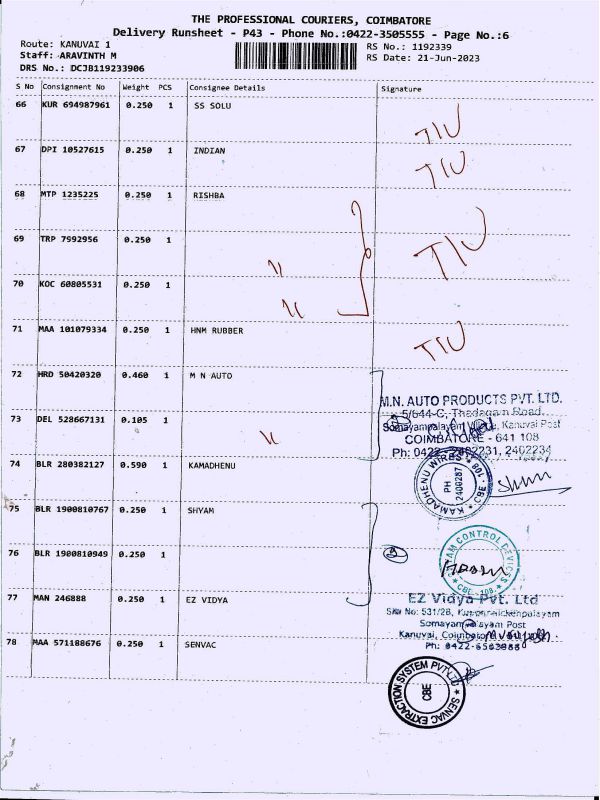 THE PROFESSIONAL COURIERS, COIMBATORE
Delivery Runsheet - P43 - Phone No.:0422-3505555 - Page No.:6
Route: KANUVAI 1
RS No.: 1192339
Staff: ARAVINTH M
RS Date: 21-Jun-2023
DRS No.: DCJB119233906
S No Consignment No Weight PCS Consignee Details Signature
66 KUR 694987961 0.250 1 SS SOLU
TIU
67 DPI 10527615 0.250 1 INDIAN
TIU
68 MTP 1235225 0.250 1 RISHBA
69 TRP 7992956 0.250 1
TIU
70 KOC 60805531 0.250 1
71 MAA 101079334 0.250 1 HNM RUBBER
TIU
72 HRD 50420320 0.460 1 M N AUTO
M.N. AUTO PRODUCTS PVT. LTD.
5/644-C, Thadagam Road,
73 DEL 528667131 0.105 1
Somayampalayam Village, Kanuvai Post
COIMBATORE - 641 108
Ph: 0422-2402231, 2402234
74 BLR 280382127 0.590 1 KAMADHENU
KAMADHENU WIRES
PH
2400287
CBE - 108
75 BLR 1900810767 0.250 1 SHYAM
76 BLR 1900810949 0.250 1
CONTROL DEVICES
CBE - 108
77 MAN 246888 0.250 1 EZ VIDYA
EZ Vidya Pvt. Ltd
Somayampalayam Post
Kanuvai, Coimbatore
78 MAA 571188676 0.250 1 SENVAC
SENVAC EXTRACTION SYSTEM PVT LTD
CBE